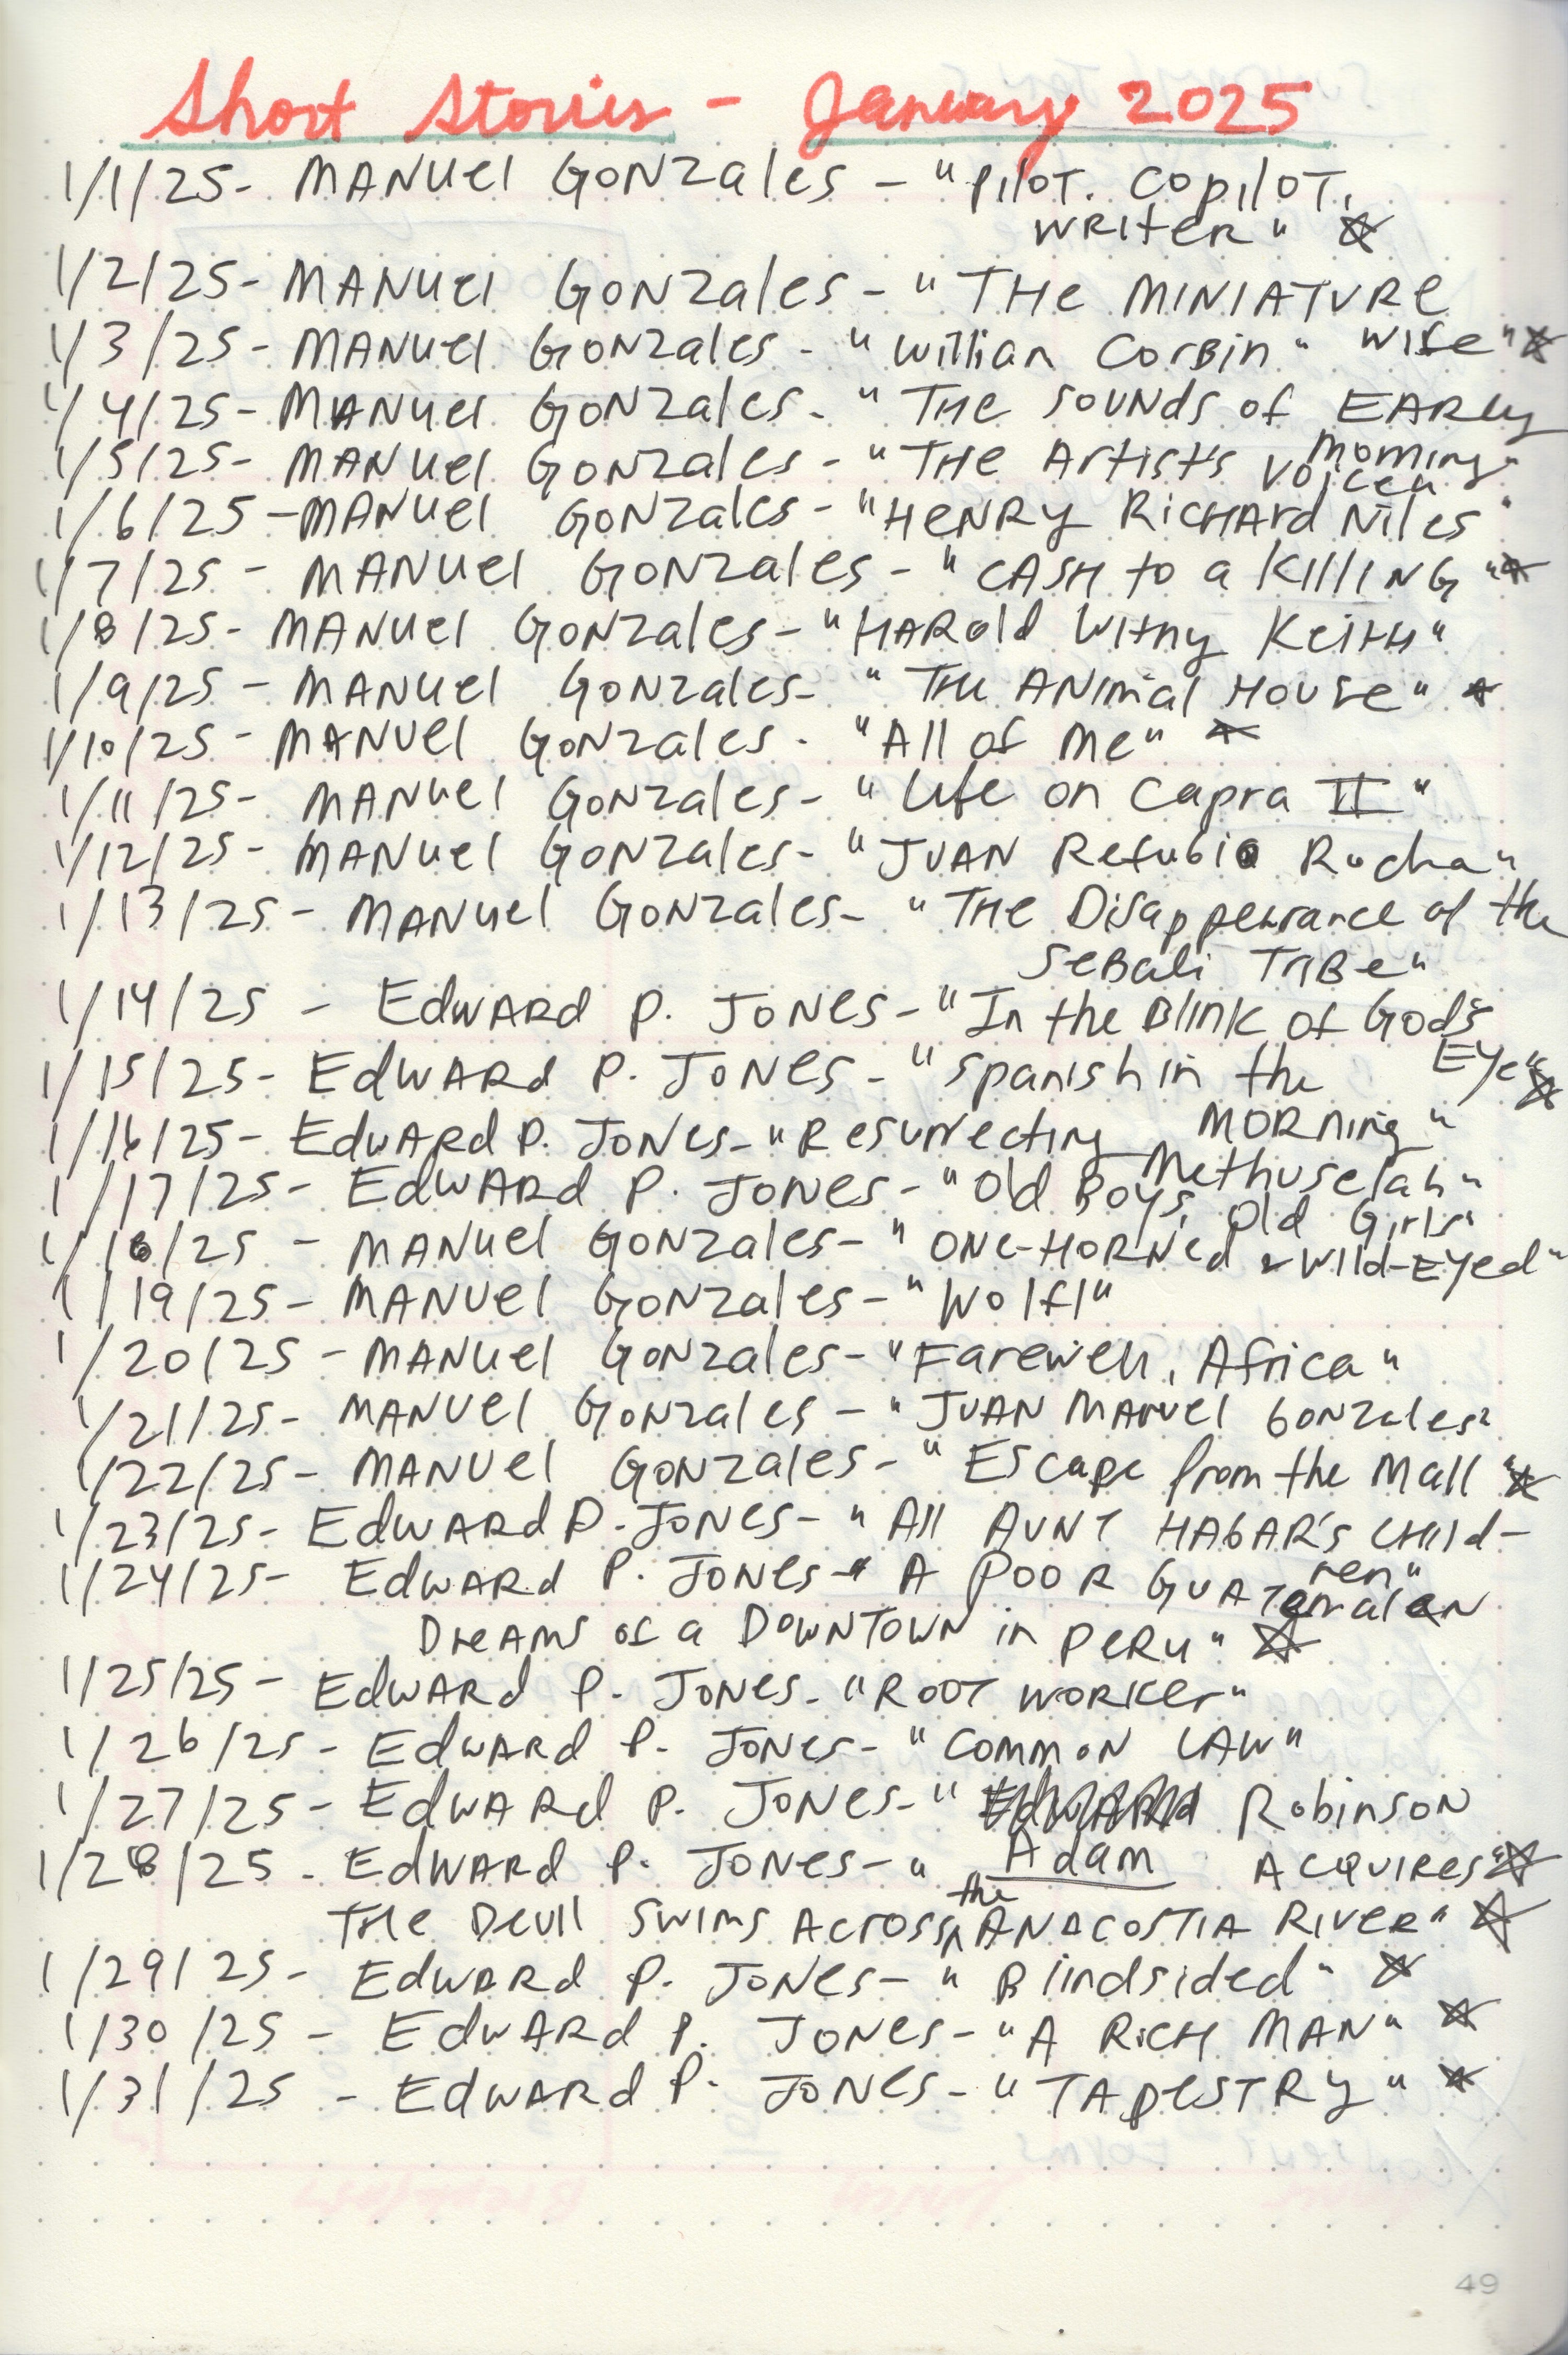 Short Stories - January 2025
1/1/25- MANUEL GONZALES - "PILOT. COPILOT,
WRITER" ☆
1/2/25- MANUEL GONZALES - "THE MINIATURE
WIFE" ☆
1/3/25- MANUEL GONZALES - "Willian Corbin"
1/4/25- MANUEL GONZALES - "THE SOUNDS OF EARLY
Morning"
1/5/25- MANUEL GONZALES - "THE Artist's VOICE"
1/6/25 - MANUEL GONZALES - "HENRY RICHARD NILES"
1/7/25 - MANUEL GONZALES - "CASH to a KILLING" ☆
1/8/25- MANUEL GONZALES - "HAROLD WITHY KEITH"
1/9/25 - MANUEL GONZALES- "THE ANIMAL HOUSE" ☆
1/10/25 - MANUEL GONZALES - "All of Me" ☆
1/11/25- MANUEL GONZALES- "Life on Capra II"
1/12/25- MANUEL GONZALES- "JUAN Refubio Rocha"
1/13/25- MANUEL GONZALES- "THE Disappearance of the
SEBALI TRIBE"
1/14/25 - EDWARD P. JONES - "In the Blink of God's
Eye" ☆
1/15/25- EDWARD P. JONES - "Spanish in the
MORNING"
1/16/25- EDWARD P. JONES- "RESURRECTING
Methuselah"
1/17/25- EDWARD P. JONES - "Old Boys, Old Girls"
1/18/25 - MANUEL GONZALES - "ONE-HORNED & Wild-EYED"
1/19/25- MANUEL GONZALES - "Wolf!"
1/20/25 - MANUEL GONZALES- "Farewell, Africa"
1/21/25- MANUEL GONZALES - "JUAN MANUEL GONZALES"
1/22/25- MANUEL GONZALES- "Escape from the Mall" ☆
1/23/25- EDWARD P. JONES- "All AUNT HAGAR'S CHILD-
ren"
1/24/25- EDWARD P. JONES- "A POOR GUATEMALAN
DREAMS OF a DOWNTOWN in PERU" ☆
1/25/25 - EDWARD P. JONES- "ROOT WORKER"
1/26/25 - EDWARD P. JONES- "COMMON LAW"
1/27/25 - EDWARD P. JONES- " Adam Robinson
ACQUIRES" ☆
1/28/25 - EDWARD P. JONES- "
THE DEVIL SWIMS ACROSS the ANACOSTIA RIVER" ☆
1/29/25- EDWARD P. JONES- "Blindsided" ☆
1/30/25 - EDWARD P. JONES- "A RICH MAN" ☆
1/31/25 - EDWARD P. JONES- "TAPESTRY" ☆
49